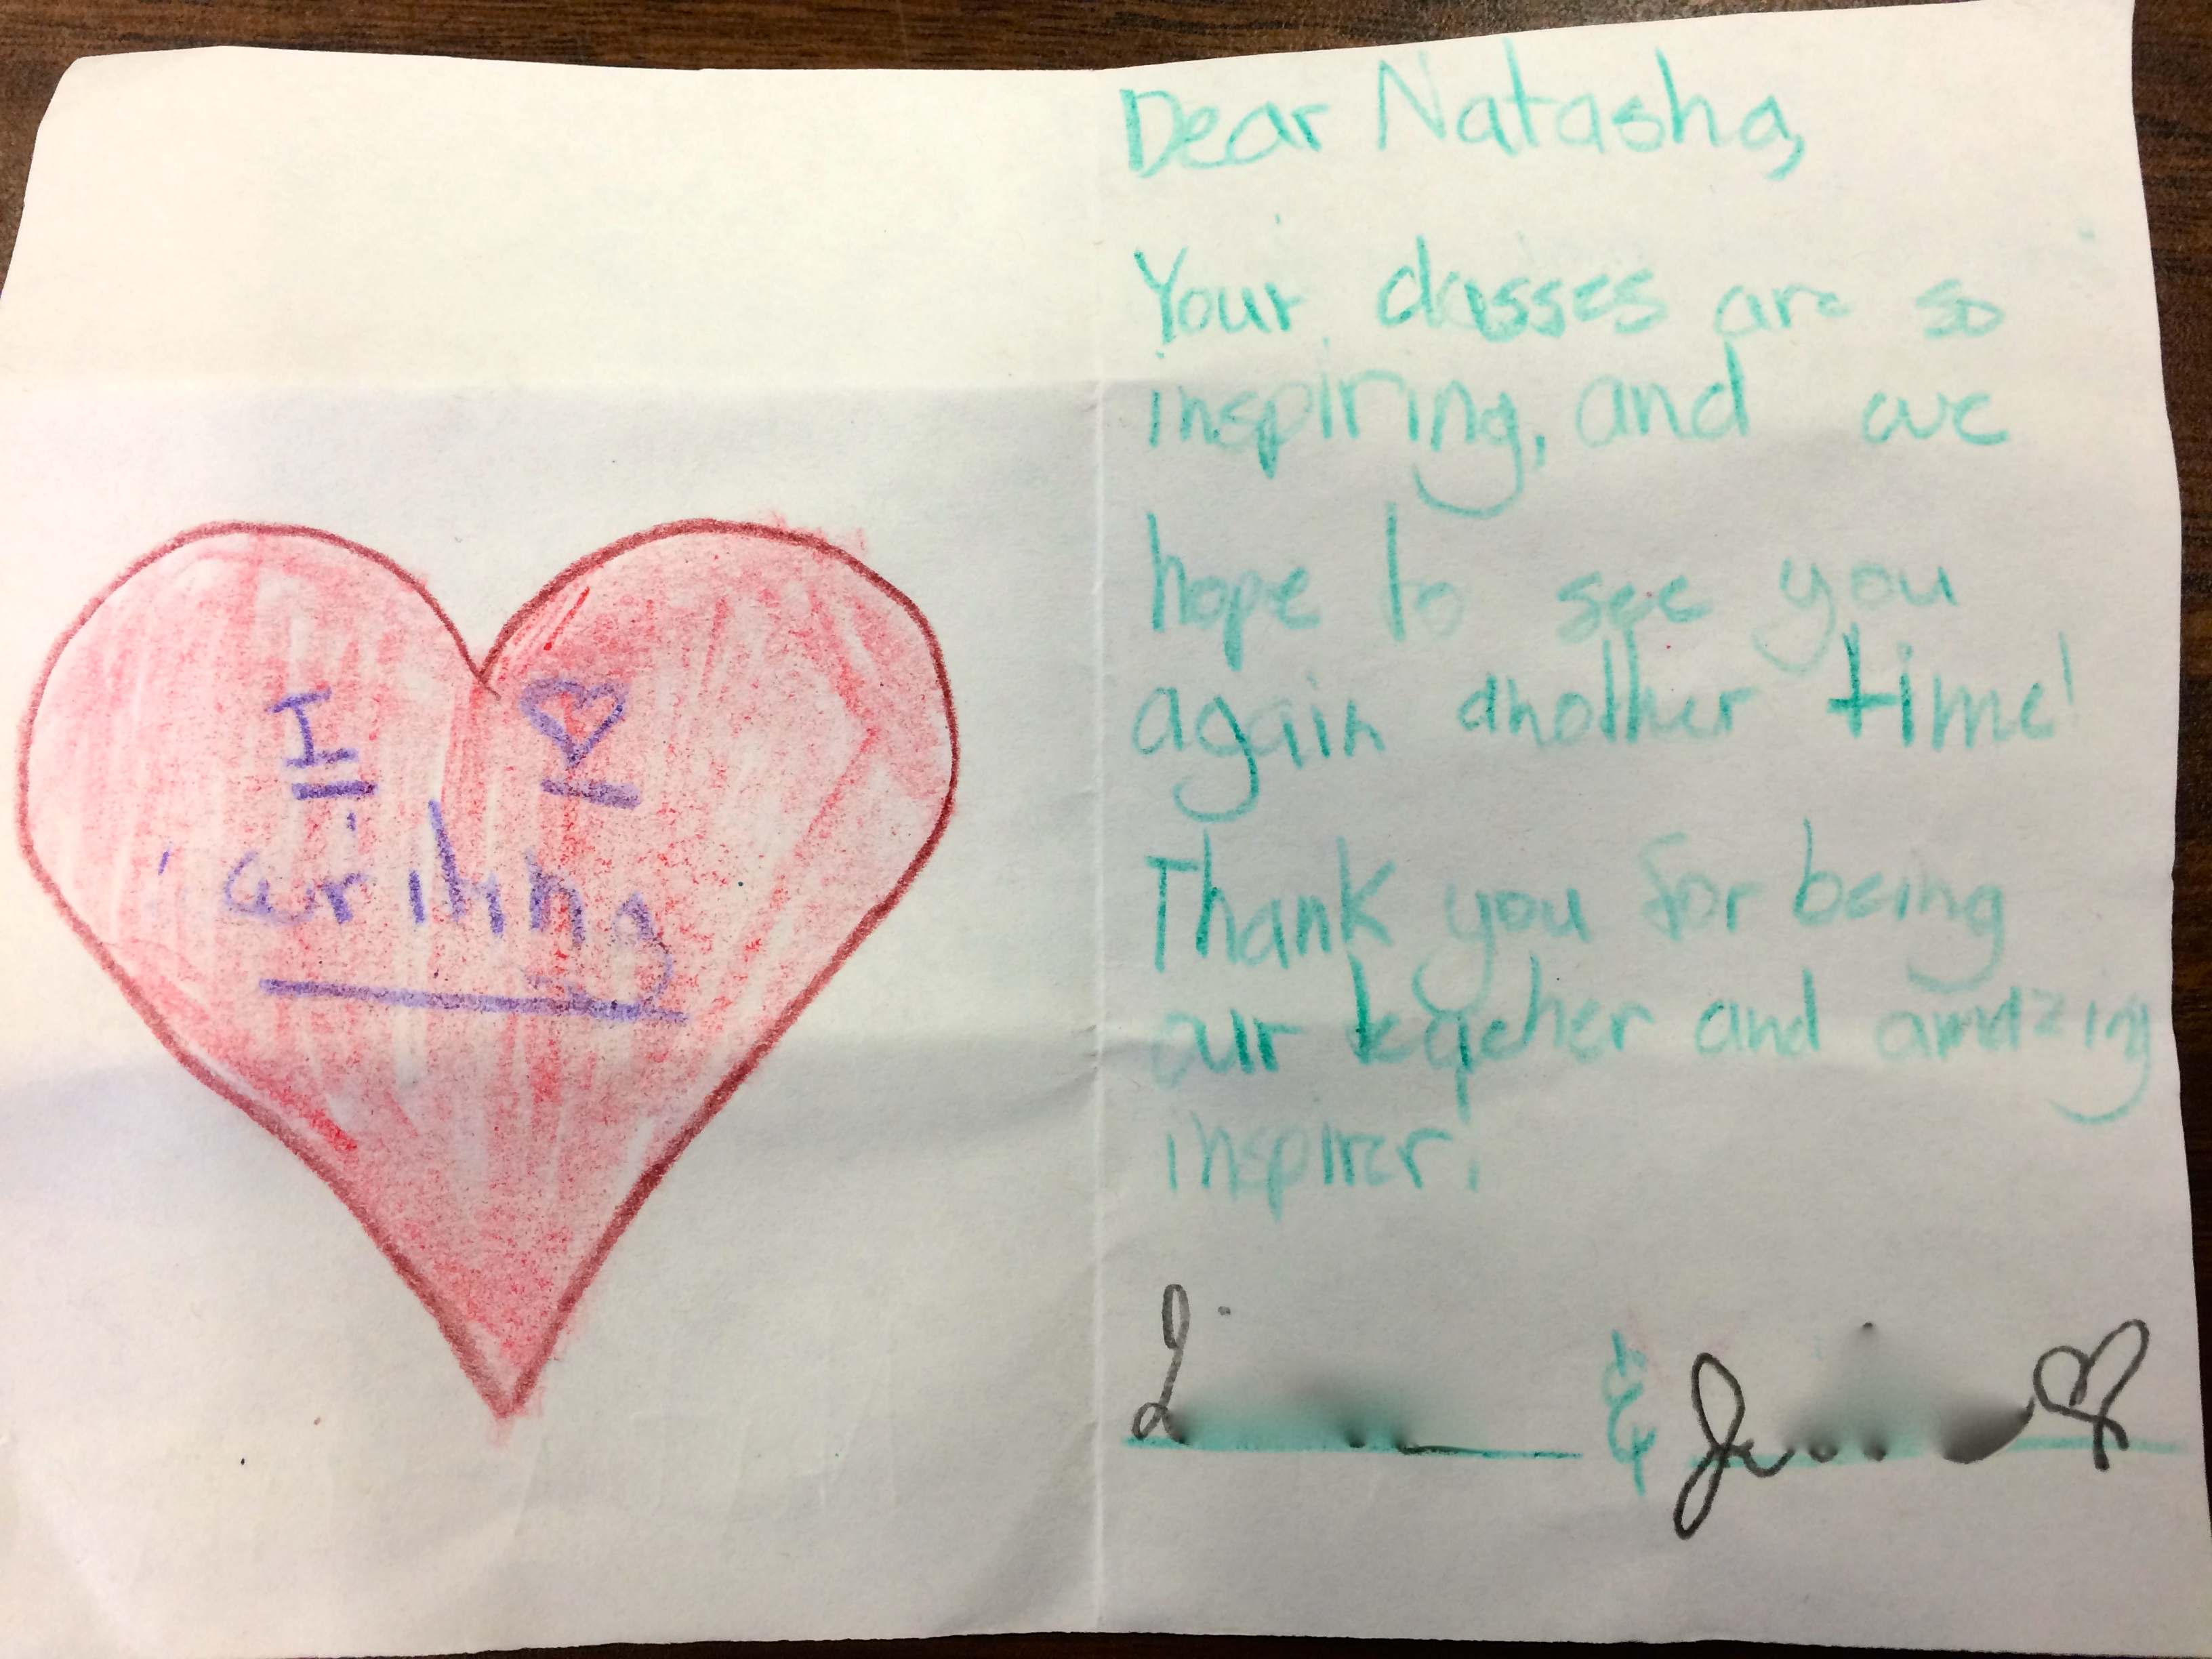 I ♡
writing
Dear Natasha,
Your classes are so
inspiring, and we
hope to see you
again another time!
Thank you for being
our teacher and amazing
inspirer.
&